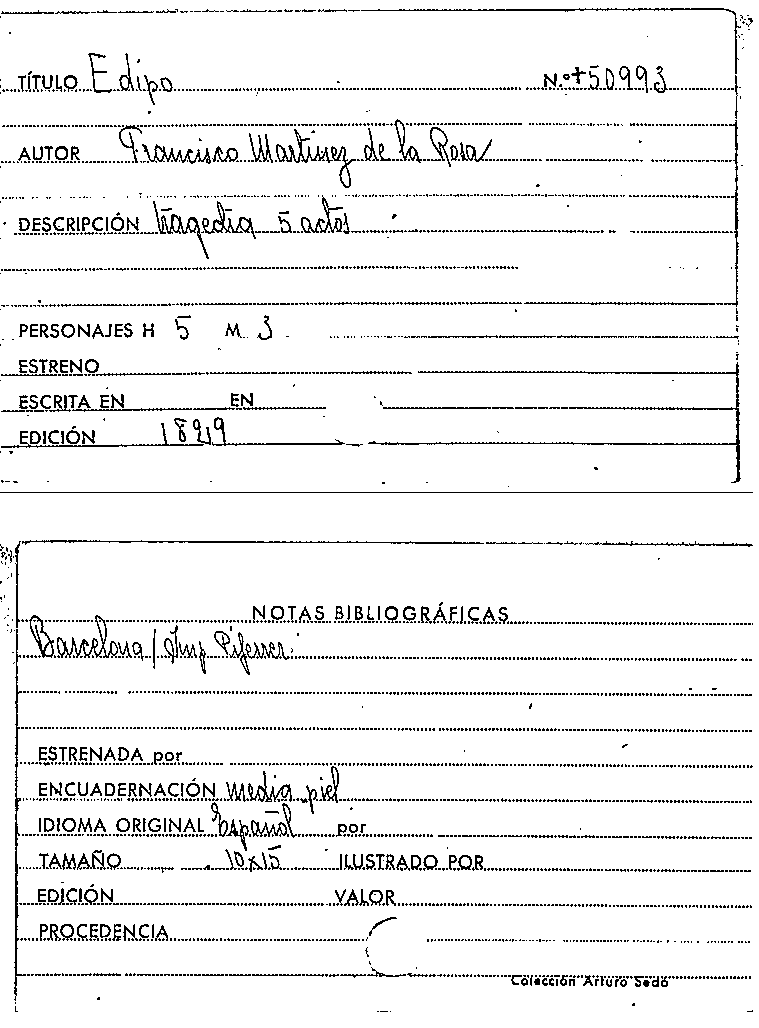 TÍTULO Edipo N.º +50993
AUTOR Francisco Martinez de la Rosa
DESCRIPCIÓN tragedia 5 actos
PERSONAJES H 5 M 3
ESTRENO
ESCRITA EN EN
EDICIÓN
NOTAS BIBLIOGRÁFICAS
Barcelona / Imp Piferrer
ESTRENADA por
ENCUADERNACIÓN media piel
IDIOMA ORIGINAL Español por
TAMAÑO 10x15 ILUSTRADO POR
EDICIÓN VALOR
PROCEDENCIA
Colección Arturo Sedó